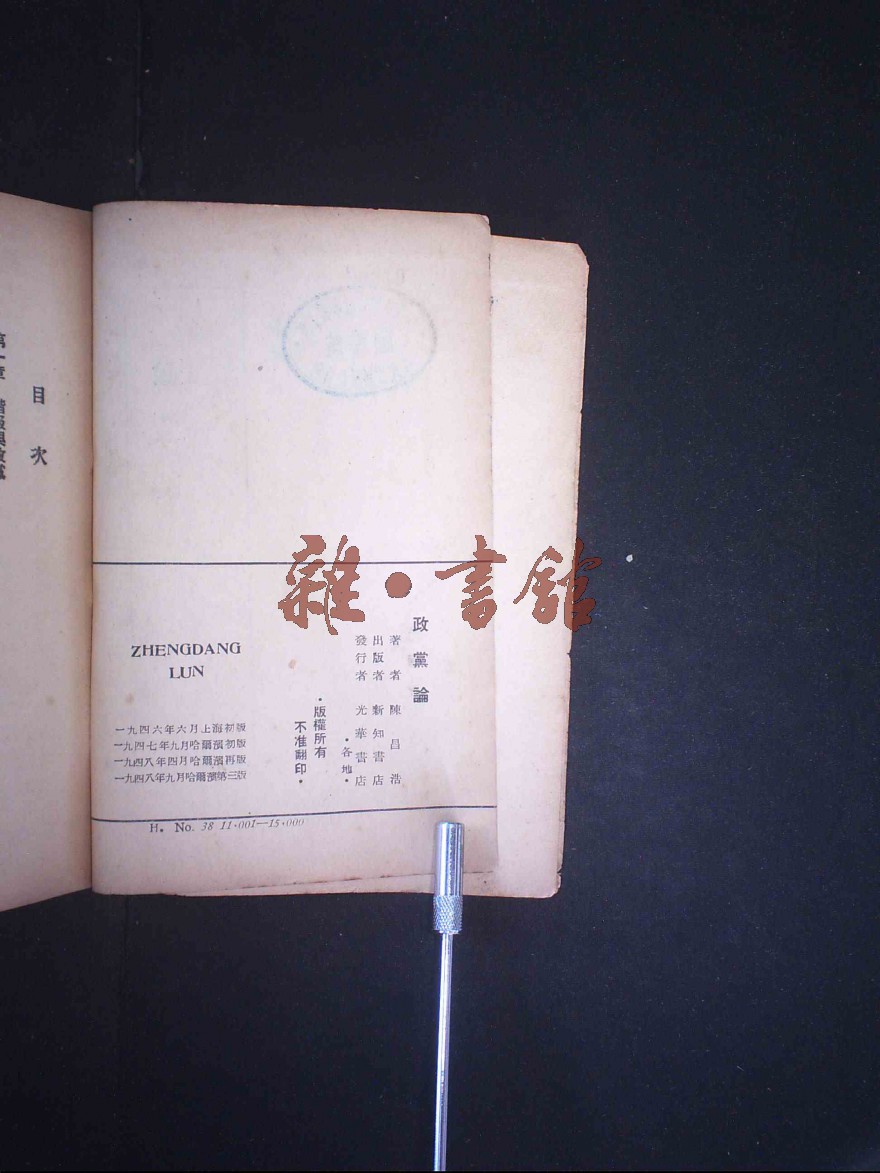 政黨論
著者 陳昌浩
出版者 新知書店
發行者 光華書店
·各地·
·版權所有
不准翻印·
ZHENGDANG
LUN
一九四六年六月上海初版
一九四七年九月哈爾濱初版
一九四八年四月哈爾濱再版
一九四八年九月哈爾濱第三版
H. No. 38 11·001—15·000
目次
第一章 階級與政黨
雜·書館